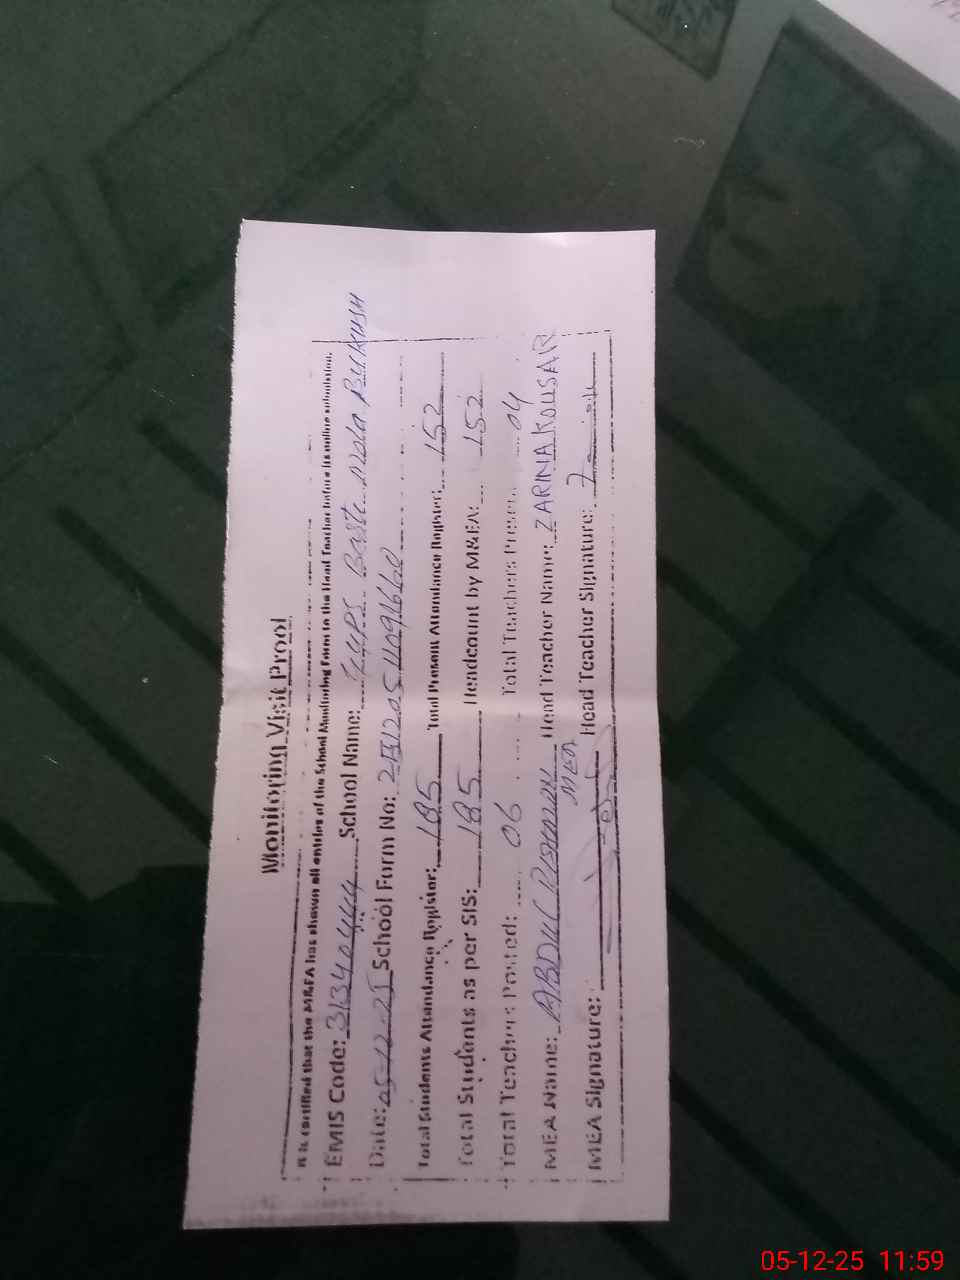 Monitoring Visit Proof
It is certified that the M&EA has shown all entries of the School Monitoring Form to the Head Teacher before its online submission.
EMIS Code: 31340444 School Name: GGPS Basti Mola BUKHSH
Date: 05-12-25 School Form No:
Total Students Attendance Register: 185 Total Present Attendance Register: 152
Total Students as per SIS: 185 Headcount by M&EA: 152
Total Teachers Posted: 06 Total Teachers Present: 04
MEA Name: ABDUL REHMAN Head Teacher Name: ZARINA KOUSAR
MEA
MEA Signature: Head Teacher Signature:
05-12-25 11:59